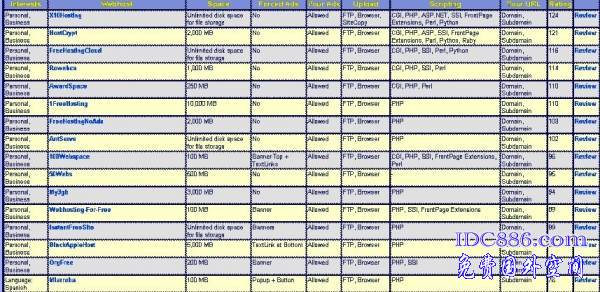 Interests Webhost Space Forced Ads Your Ads Upload Scripting Your URL Rating
Personal, Business X10Hosting Unlimited disk space for file storage No Allowed FTP, Browser, SiteCopy CGI, PHP, ASP.NET, SSI, FrontPage Extensions, Perl, Python Domain, Subdomain 124 Review
Personal, Business 2,000 MB No Allowed FTP, Browser CGI, PHP, ASP, SSI, FrontPage Extensions, Perl, Python, Ruby Domain, Subdomain 121 Review
Personal, Business FreeHostingCloud Unlimited disk space for file storage No Allowed FTP, Browser CGI, PHP, SSI, Perl, Python Domain, Subdomain 116 Review
Personal, Business 1,000 MB No Allowed FTP, Browser CGI, PHP, SSI, Perl Domain, Subdomain 114 Review
Personal, Business AwardSpace 250 MB No Allowed FTP, Browser CGI, PHP, Perl Domain, Subdomain 110 Review
Personal, Business 1FreeHosting 10,000 MB No Allowed FTP, Browser PHP Domain, Subdomain 110 Review
Personal, Business FreeHostingNoAds 2,000 MB No Allowed FTP, Browser PHP Domain, Subdomain 103 Review
Personal, Business Unlimited disk space for file storage No Allowed FTP, Browser PHP Domain, Subdomain 102 Review
Personal, Business 100Webspace 100 MB Banner Top + TextLinks Allowed FTP, Browser CGI, PHP, SSI, FrontPage Extensions, Perl Domain, Subdomain 96 Review
Personal, Business 50Webs 500 MB No Allowed FTP, Browser Domain, Subdomain 95 Review
Personal, Business 3,000 MB No Allowed FTP, Browser PHP Domain, Subdomain 94 Review
Personal, Business Webhosting-For-Free 100 MB Banner Allowed FTP, Browser PHP, SSI, FrontPage Extensions Domain, Subdomain 89 Review
Personal, Business InstantFreeSite Unlimited disk space for file storage Banners Allowed FTP, Browser PHP Domain, Subdomain Review
Personal, Business BlackAppleHost 5,000 MB TextLink at Bottom Allowed FTP, Browser PHP
Personal, Business OrgFree 200 MB Banner Allowed FTP, Browser PHP, SSI
Language: Spanish Miarroba 100 MB Popup + Button Allowed FTP, Browser PHP 76 Review
IDC886.com
免费国外空间